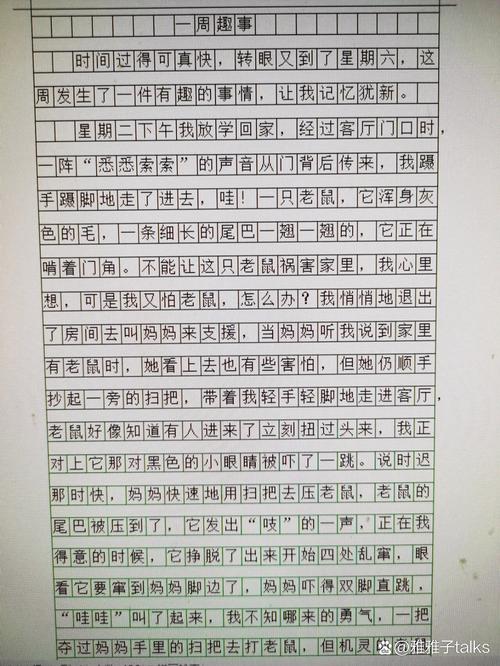 一周趣事
时间过得可真快，转眼又到了星期六，这
周发生了一件有趣的事情，让我记忆犹新。
星期二下午我放学回家，经过客厅门口时，
一阵“悉悉索索”的声音从门背后传来，我蹑
手蹑脚地走了进去，哇！一只老鼠，它浑身灰
色的毛，一条细长的尾巴一翘一翘的，它正在
啃着门角。不能让这只老鼠祸害家里，我心里
想，可是我又怕老鼠，怎么办？我悄悄地退出
了房间去叫妈妈来支援，当妈妈听我说到家里
有老鼠时，她看上去也有些害怕，但她仍顺手
抄起一旁的扫把，带着我轻手轻脚地走进客厅，
老鼠好像知道有人进来了立刻扭过头来，我正
对上它那对黑色的小眼睛被吓了一跳。说时迟
那时快，妈妈快速地用扫把去压老鼠，老鼠的
尾巴被压到了，它发出“吱”的一声，正在我
得意的时候，它挣脱了出来开始四处乱窜，眼
看它要窜到妈妈脚边了，妈妈吓得双脚直跳，
“哇哇”叫了起来，我不知哪来的勇气，一把
夺过妈妈手里的扫把去打老鼠，但机灵的老鼠
@雅雅子talks